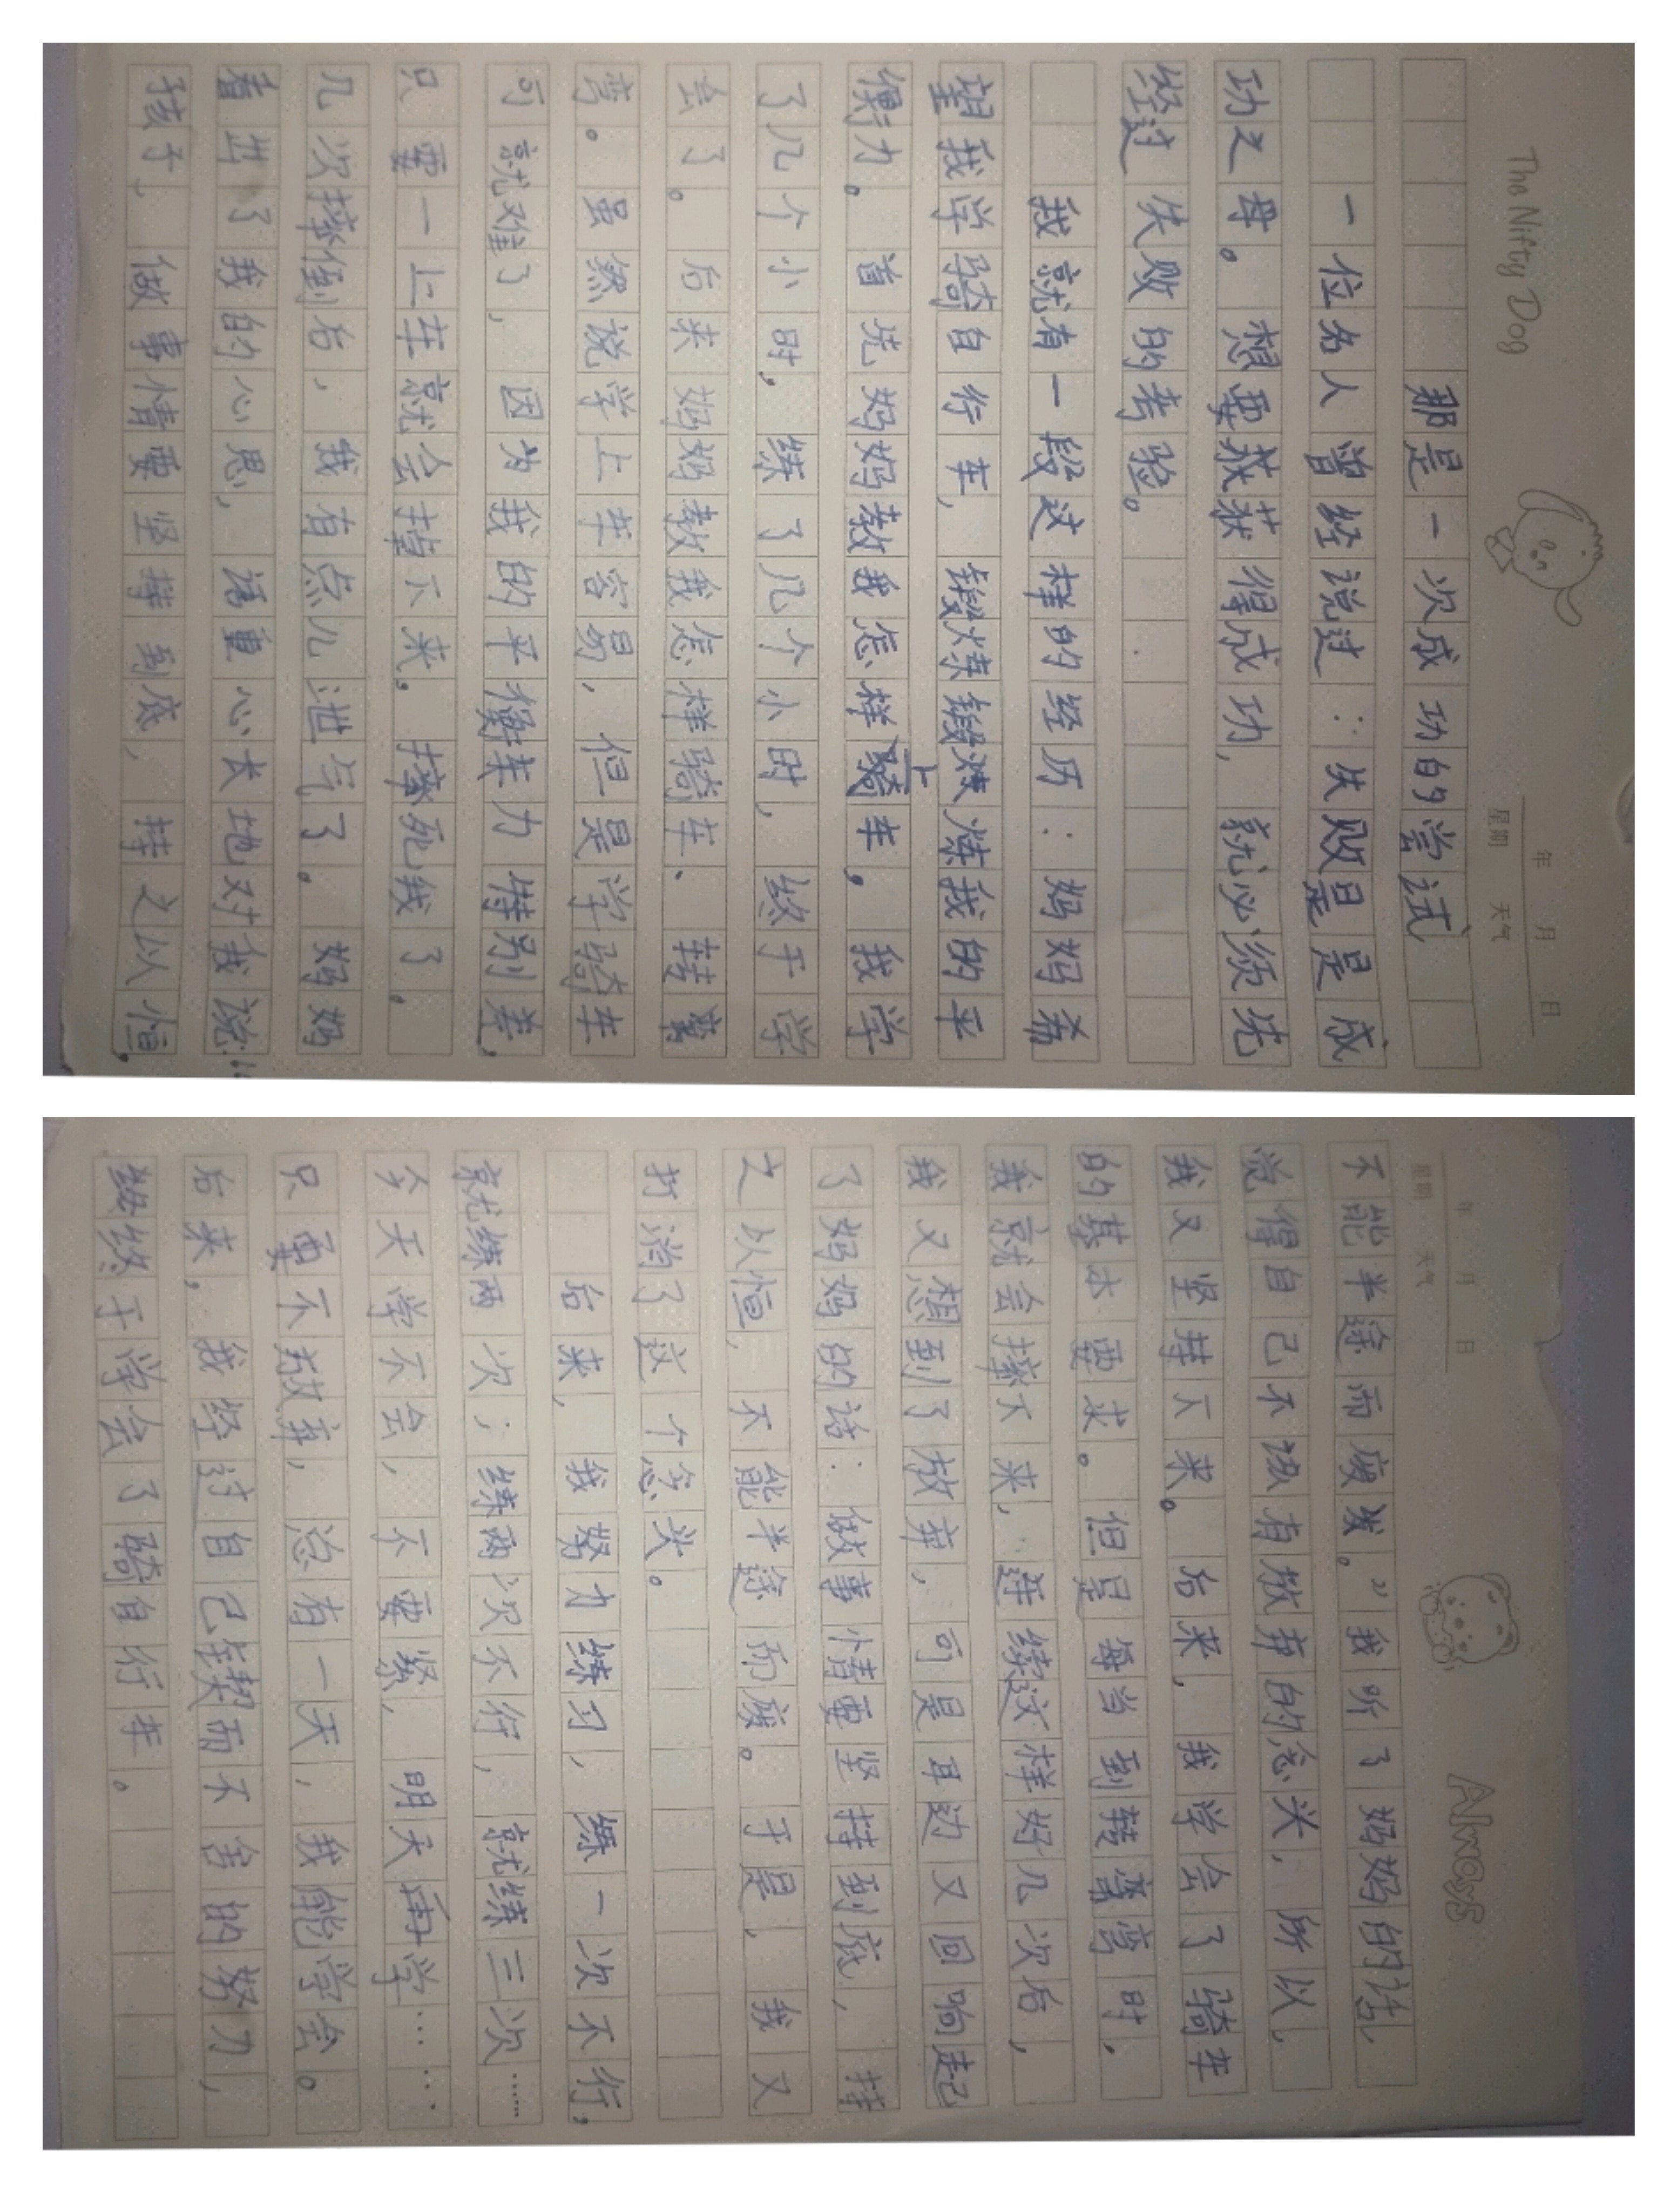 The Nifty Dog
年 月 日
星期 天气
那是一次成功的尝试
一位名人曾经说过：失败是是成
功之母。想要获获得成功，就必须先
经过失败的考验。
我就有一段这样的经历：妈妈希
望我学骑自行车，锻炼锻炼炼我的平
衡力。首先妈妈教我怎样上车，我学
了几个小时，练了几个小时，终于学
会了。后来妈妈教我怎样骑车、转弯
弯。虽然说学上车容易，但是学骑车
可就难了，因为我的平衡车力特别差，
只要一上车就会掉下来。摔死我了。
几次摔倒后，我有点儿泄气了。妈妈
看出了我的心思，语重心长地对我说：“
孩子，做事情要坚持到底，持之以恒，
年 月 日
星期 天气
Always
不能半途而废发。”我听了妈妈的话，
觉得自己不该有放弃的念头，所以，
我又坚持下来。后来，我学会了骑车
的基本要求。但是每当到转弯弯时，
我就会摔下来，连续这样好几次后，
我又想到了放弃，可是耳边又回响起
了妈妈的话：做事情要坚持到底，持
之以恒，不能半途而废。于是，我又
打消了这个念头。
后来，我努力练习，练一次不行，
就练两次；练两次不行，就练三次……
今天学不会，不要紧，明天再学……
只要不放弃，总有一天，我能学会。
后来，我经过自己锲而不舍的努力，
终终于学会了骑自行车。